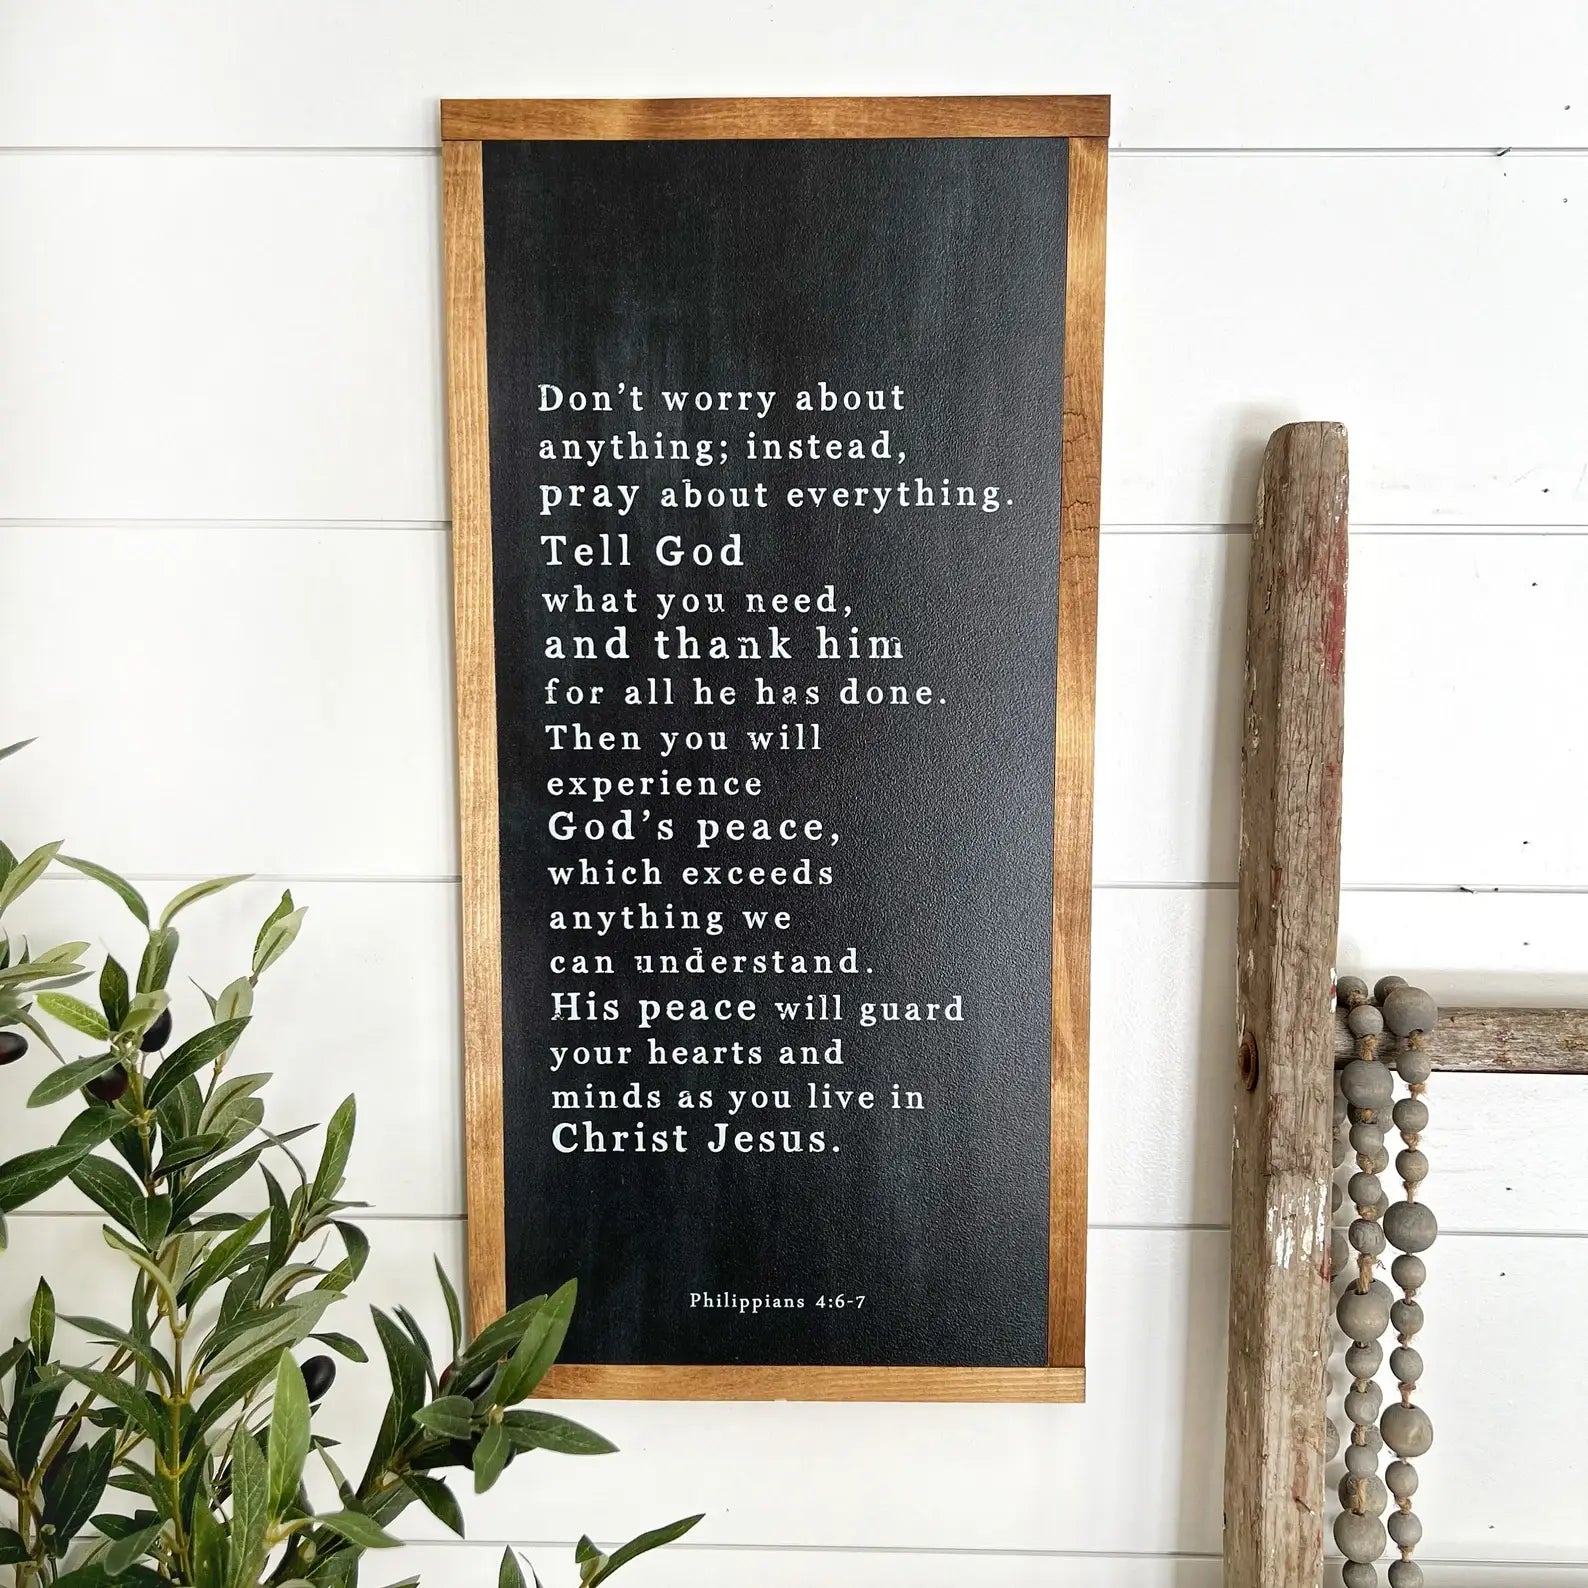 Don't worry about
anything; instead,
pray about everything.
Tell God
what you need,
and thank him
for all he has done.
Then you will
experience
God's peace,
which exceeds
anything we
can understand.
His peace will guard
your hearts and
minds as you live in
Christ Jesus.
Philippians 4:6-7